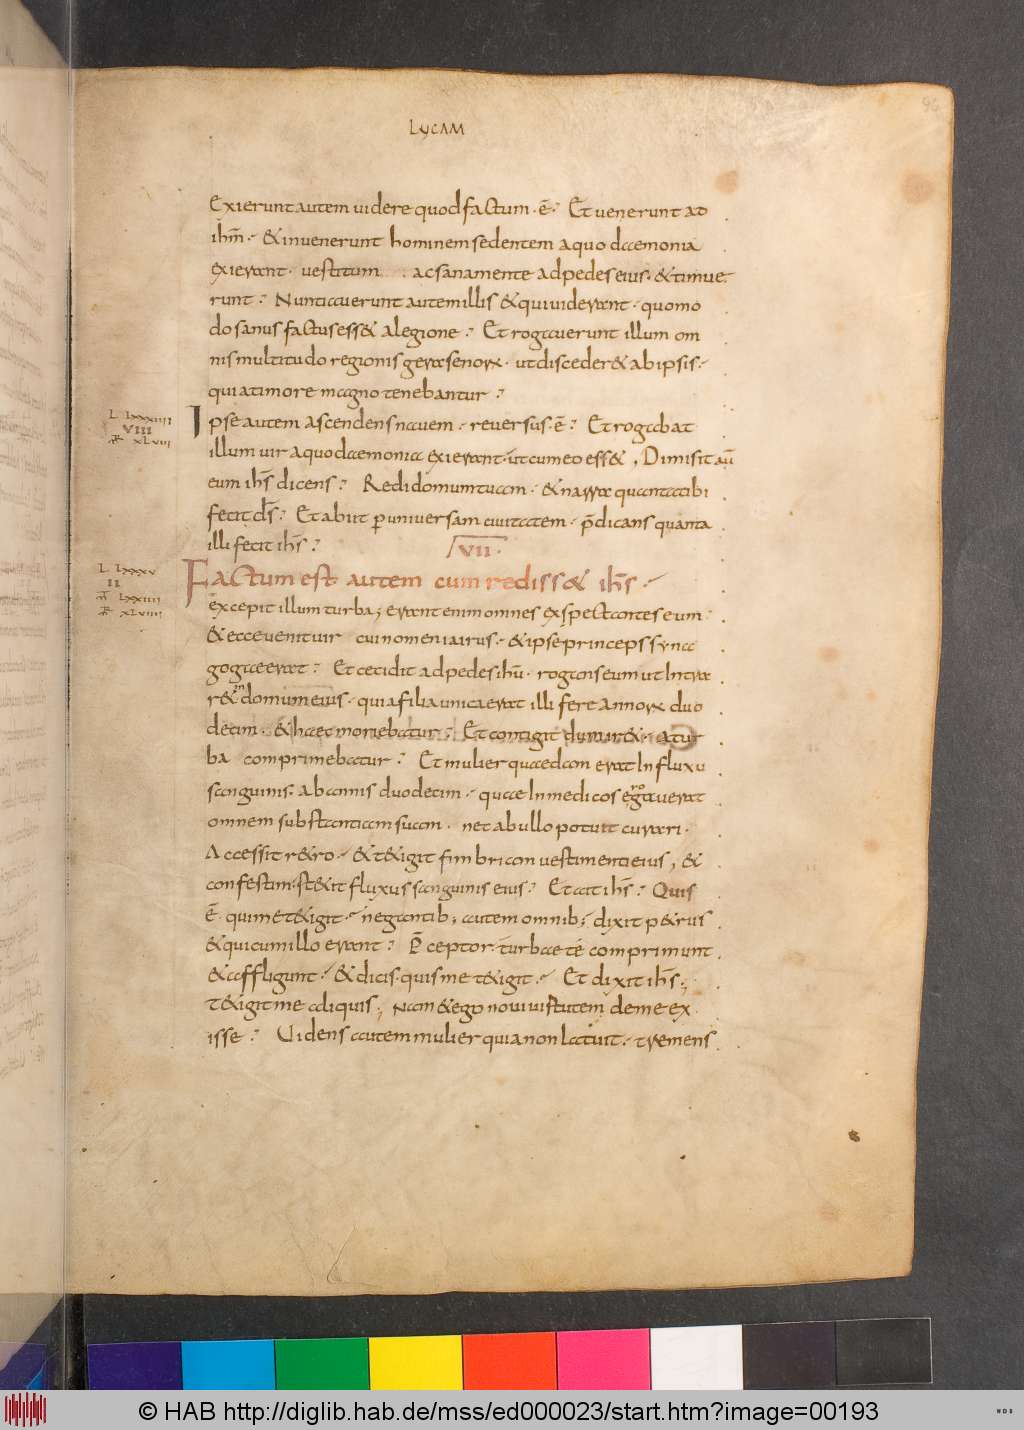 96
LYCAM
Exierunt autem videre quod factum · ē· Et venerunt ad
ihm̄· & invenerunt hominem sedentem a quo daemonia
exierant · vestitum ac sana mente ad pedes eius · & timue
runt · Nuntiaverunt autem illis & qui viderant · quomo
do sanus factus ess& a legione · Et rogaverunt illum om
nis multitudo regionis gerasenorꝝ · ut disceder& ab ipsis·
quia timore magno tenebantur ·
L LXXXIIII
VIII
M̄R XLVIII
Ipse autem ascendens navem · reversus · ē· Et rogabat
illum vir a quo daemonia exierant · ut cum eo ess& , Dimisit aū
eum ih̄s dicens · Redi domum tuam · & narra quanta tibi
fecit d̄s · Et abiit ꝑ universam civitatem · p̄dicans quanta
illi fecit ih̄s ·
VII ·
L LXXXV
II
M̄ LXXIIII
M̄R XLVIIII
Factum est autem cum rediss& ih̄s ·
excepit illum turba; erant enim omnes exspectantes eum ·
& ecce venit vir cui nomen iairus · & ipse princeps syna
gogae erat · Et cecidit ad pedes ihū · rogans eum ut intra
r& in domum eius · quia filia unica erat illi fere annorꝝ duo
decim · & haec moriebatur · Et contigit dum ir& · a tur
ba comprimebatur · Et mulier quaedam erat in fluxu
sanguinis · ab annis duodecim · quae in medicos erogaverat
omnem substantiam suam · nec ab ullo potuit curari ·
Accessit r&ro · & t&igit fimbriam vestimenti eius , &
confestim · st&it fluxus sanguinis eius · Et ait ih̄s · Quis
ē· qui me t&igit · negantib; autem omnib; dixit p&rus
& qui cum illo erant · P̄ceptor · turbae te comprimunt
& affligunt · & dicis · quis me t&igit · Et dixit ih̄s ;
t&igit me aliquis ; Nam & ego novi virtutem de me ex
isse · Videns autem mulier quia non latuit · tremens
© HAB http://diglib.hab.de/mss/ed000023/start.htm?image=00193
WDB